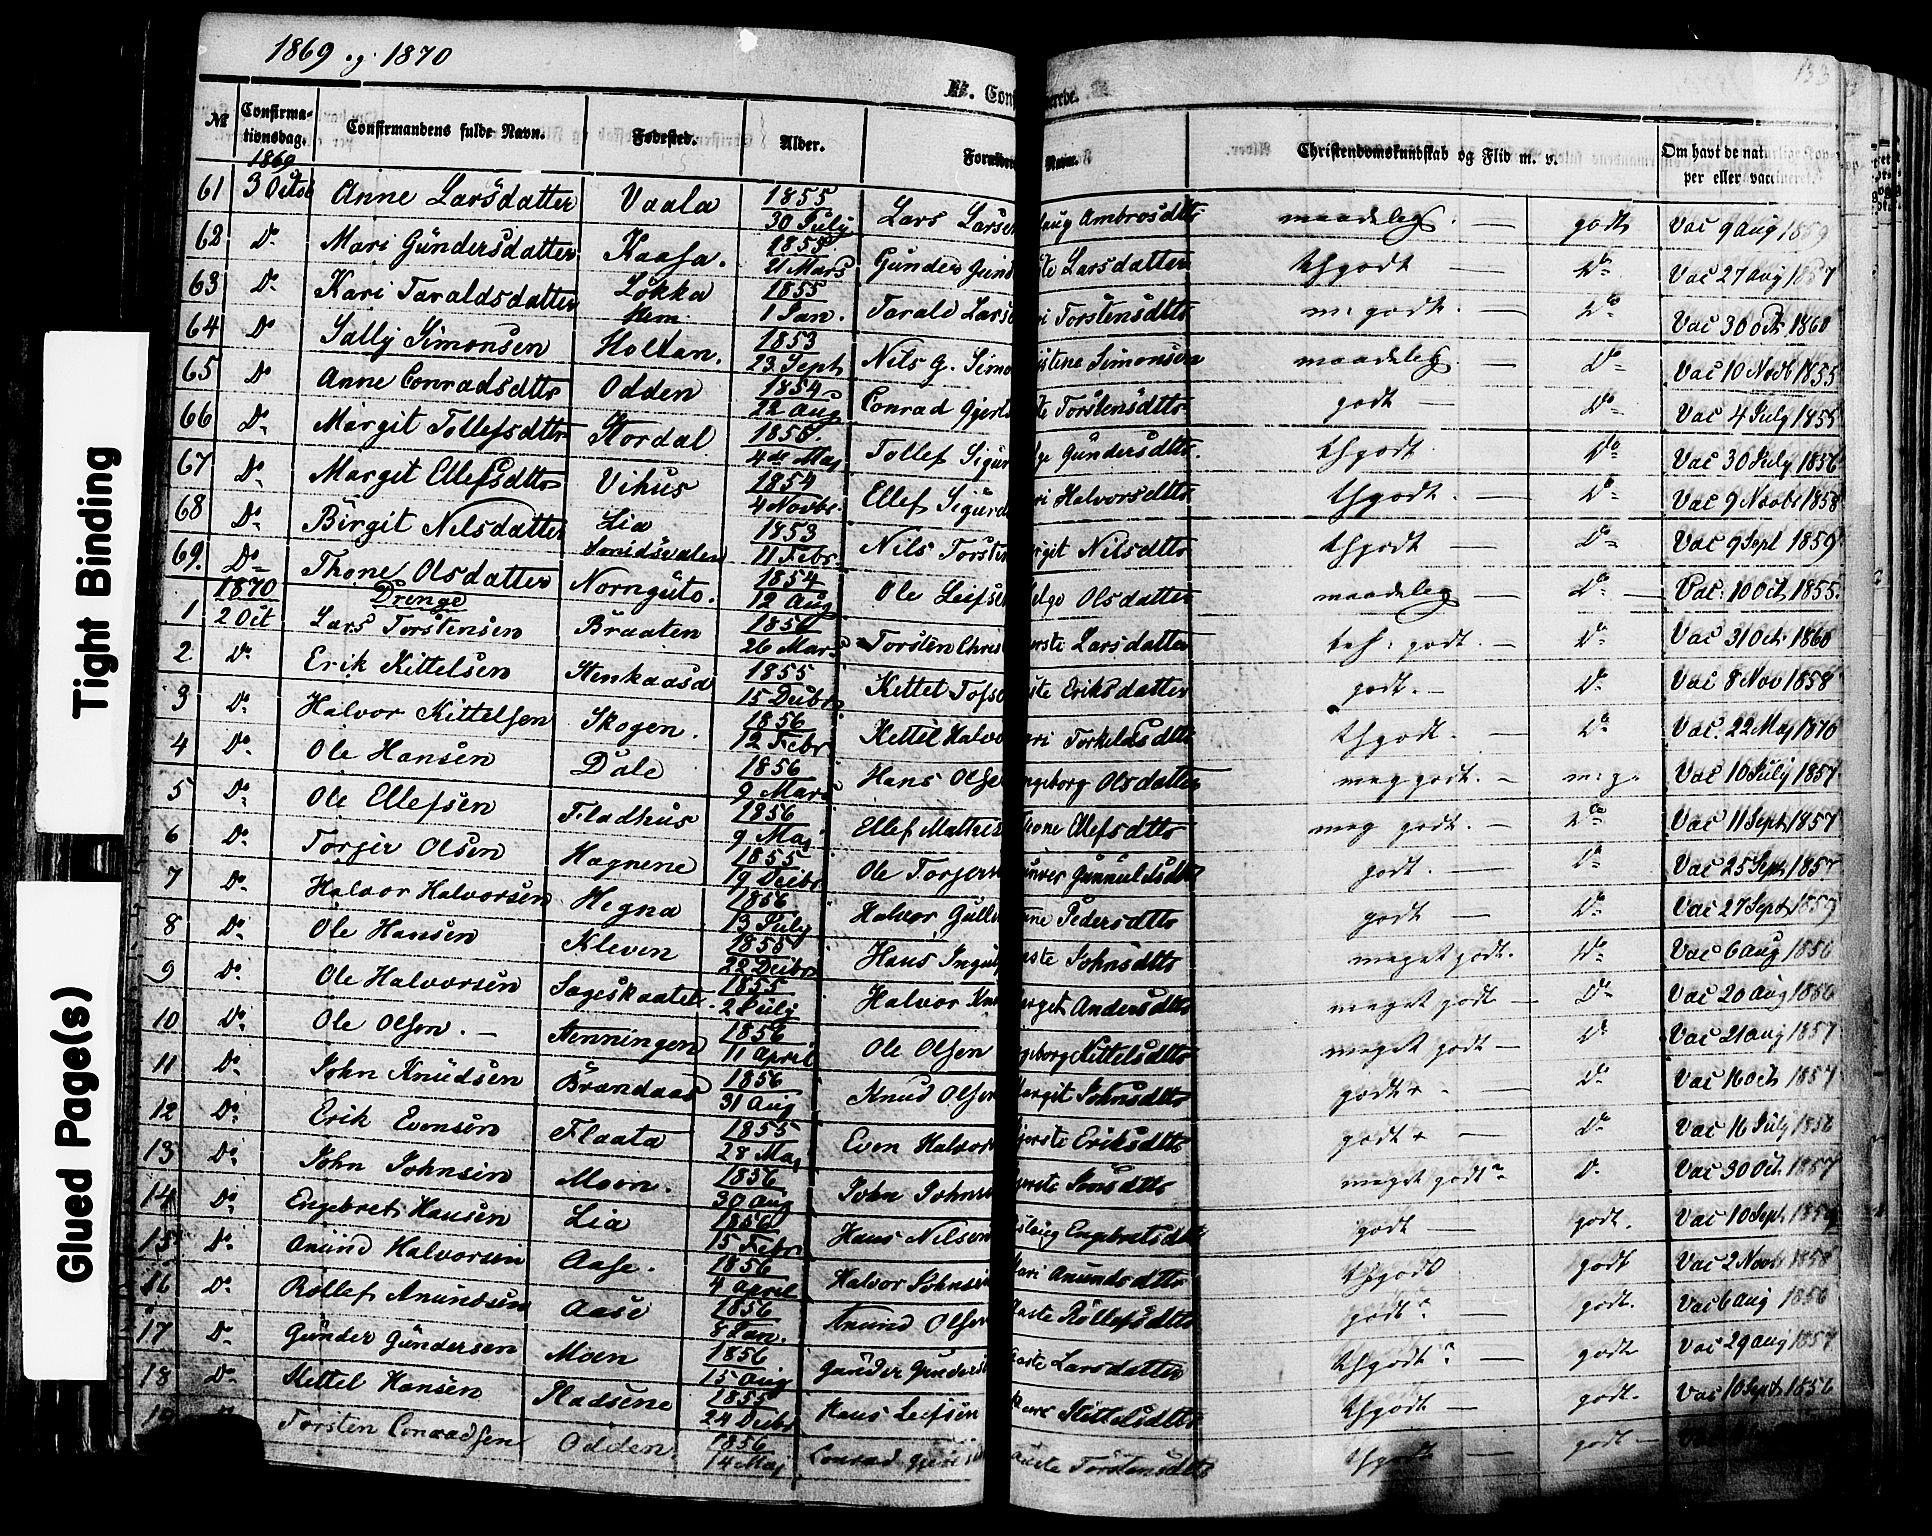 1869 og 1870
133
Tight Binding
Glued Page(s)
№ Confirmationsdag. Confirmandens fulde Navn. Fødested. Alder. Navn. Christendomskundskab og Flid m. v. Om havt de naturlige Kopper eller vaccineret.
1869
61 3 Octob Anne Larsdatter Vaala 1855 30 July Lars Larsen Ambrosdtr maadelig. — godt Vac 9 Aug 1859
62 Do Mari Gündersdatter Kaasa. 1855 21 Mars Günder Larsdatter thgodt — Do Vac 27 Aug 1857
63 Do Kari Taraldsdatter Løkka 1855 1 Jan. Tarald Torstensdtr m. godt. Do Vac 30 Oct 1860
64 Do Sally Simonsen Holtan. 1853 23 Sept Nils G. Simonsen maadelig. — Do Vac 10 Novb 1855
65 Do Anne Conradsdtr Odden 1854 22 Aug Conrad Torstensdtr godt — Do Vac 4 July 1855
66 Do Margit Tollefsdtr Stordal 4de Maj Tollef Gündersdtr. thgodt Do Vac 30 July 1856
67 Do Margit Ellefsdtr Vihus 1854 4 Novbr. Ellef Halvorsdtr thgodt. — Do Vac 9 Novbr 1858
68 Do Birgit Nilsdatter Lia 1853 11 Febr. Nils Nilsdtr thgodt — Do Vac 9 Sept 1859
69. Do Thone Olsdatter Nornguto. 1854 12 Aug Ole Olsdatter maadelig — Do — Vac. 10 Oct 1855.
1870 Drenge
1 2 Oct Lars Torstensen Braaten 1856 26 Mars Torsten Larsdatter godt. — Do Vac 31 Oct 1860
2 Do Erik Kittelsen Stenkaasa 1855 15 Decbr Kittel Eriksdatter godt. — Do Vac 8 Nov 1858
3 Do Halvor Kittelsen Skogen. 1856 12 Febr Kittel Torkelsdtr thgodt. — Do Vac. 22 Maj 1870
4 Do Ole Hansen Dale 1856 9 Mars Hans Olsdatter meg godt. — m. g. Vac 16 July 1857
5 Do Ole Ellefsen Fladhus 1856 9 Maj Ellef Ellefsdtr meg godt. — Do Vac 11 Sept 1857
6 Do Torjer Olsen Hagnene 1855 19 Decbr Ole godt. — Do Vac 25 Sept 1857
7 Do Halvor Halvorsen Hegna 1856 13 July Halvor Pedersdtr godt — Do Vac 27 Sept 1859
8 Do Ole Hansen Kleven 1855 22 Decbr Hans Johnsdtr meget godt. Do Vac 6 Aug 1856
9 Do Ole Halvorsen Sageskaatet. 1855 2 July Halvor Andersdtr meget godt — Do Vac 20 Aug 1856
10 Do Ole Olsen. — Henningen 1856 11 April Ole Olsen Kittelsdtr meget godt — Do Vac 21 Aug 1857
11 Do John Knudsen Brændaas 1856 31 Aug Knud Olsen Johnsdtr godt — Do Vac 16 Oct 1857
12 Do Erik Evensen Flaata 1855 28 Maj Even Eriksdtr godt — Do Vac 16 July 1856
13 Do John Johnsen Moen. 1856 30 Aug John meget godt Do Vac 30 Oct 1857
14 Do Engebret Hansen Lia 1856 15 Febr Hans Nilsen Engebretsdtr godt — godt. Vac 10 Sept
15 Do Anund Halvorsen Aase. 1856 4 April Halvor Johnsen Anundsdtr thgodt godt Vac 2 Novb 1858
16 Do Rollef Anundsen Aase 1856 8 Jan. Anund Olsen Rollefsdtr godt godt. Vac 6 Aug 1856
17 Do Günder Gündersen Moen 1856 15 Aug Günder Larsdatter thgodt — godt Vac 29 Aug 1857
18 Do Kittel Hansen Pladsene 1855 24 Decbr Hans Leifsen Kittelsdtr thgodt — godt. Vac 10 Sept 1856
Torsten Conradsen Odden. 1856 14 Maj Conrad Torstensdtr thgodt — godt —